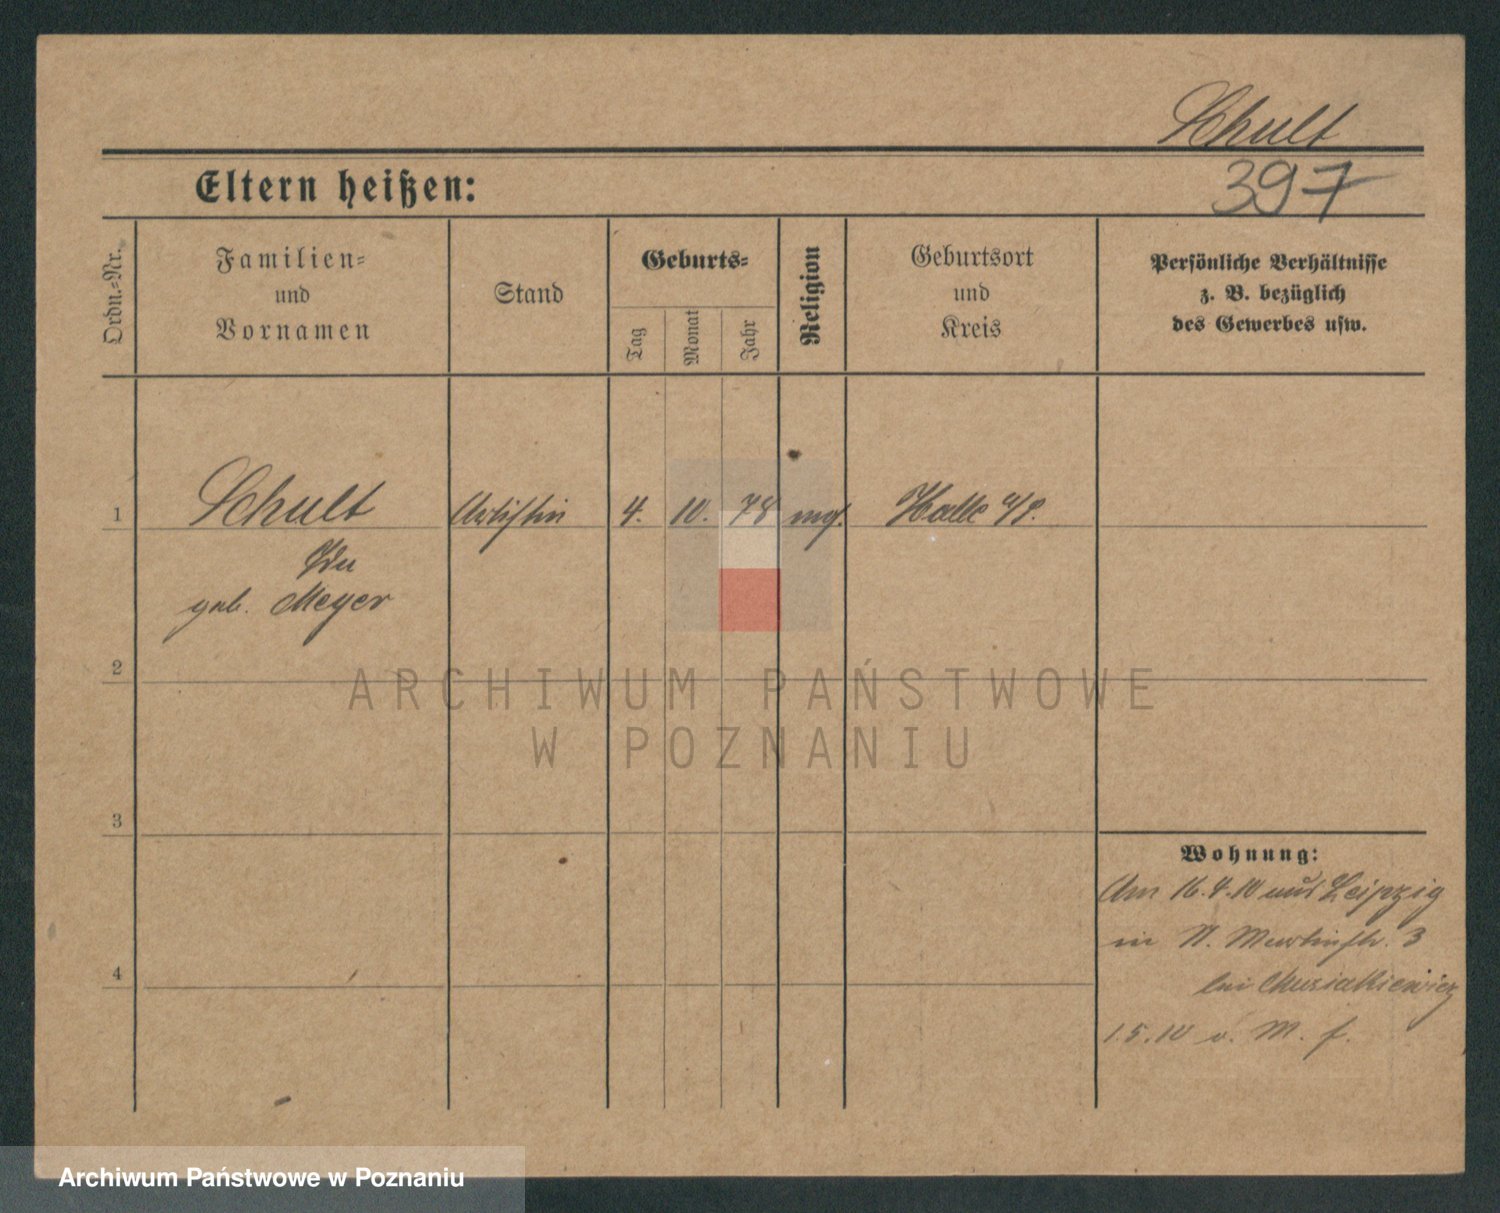 Schult
Eltern heißen:
397
Ordn.-Nr.
Familien-
und
Vornamen
Stand
Geburts-
Tag
Monat
Jahr
Religion
Geburtsort
und
Kreis
Persönliche Verhältnisse
z. B. bezüglich
des Gewerbes usw.
1
Schult
Artistin
4.
10.
78
Halle a/S.
Ida
geb. Meyer
2
ARCHIWUM PAŃSTWOWE
W POZNANIU
3
Wohnung:
Am 16.4.10 aus Leipzig
in St. Martinstr. 3
bei
4
1.5.10 o. M. f.
Archiwum Państwowe w Poznaniu